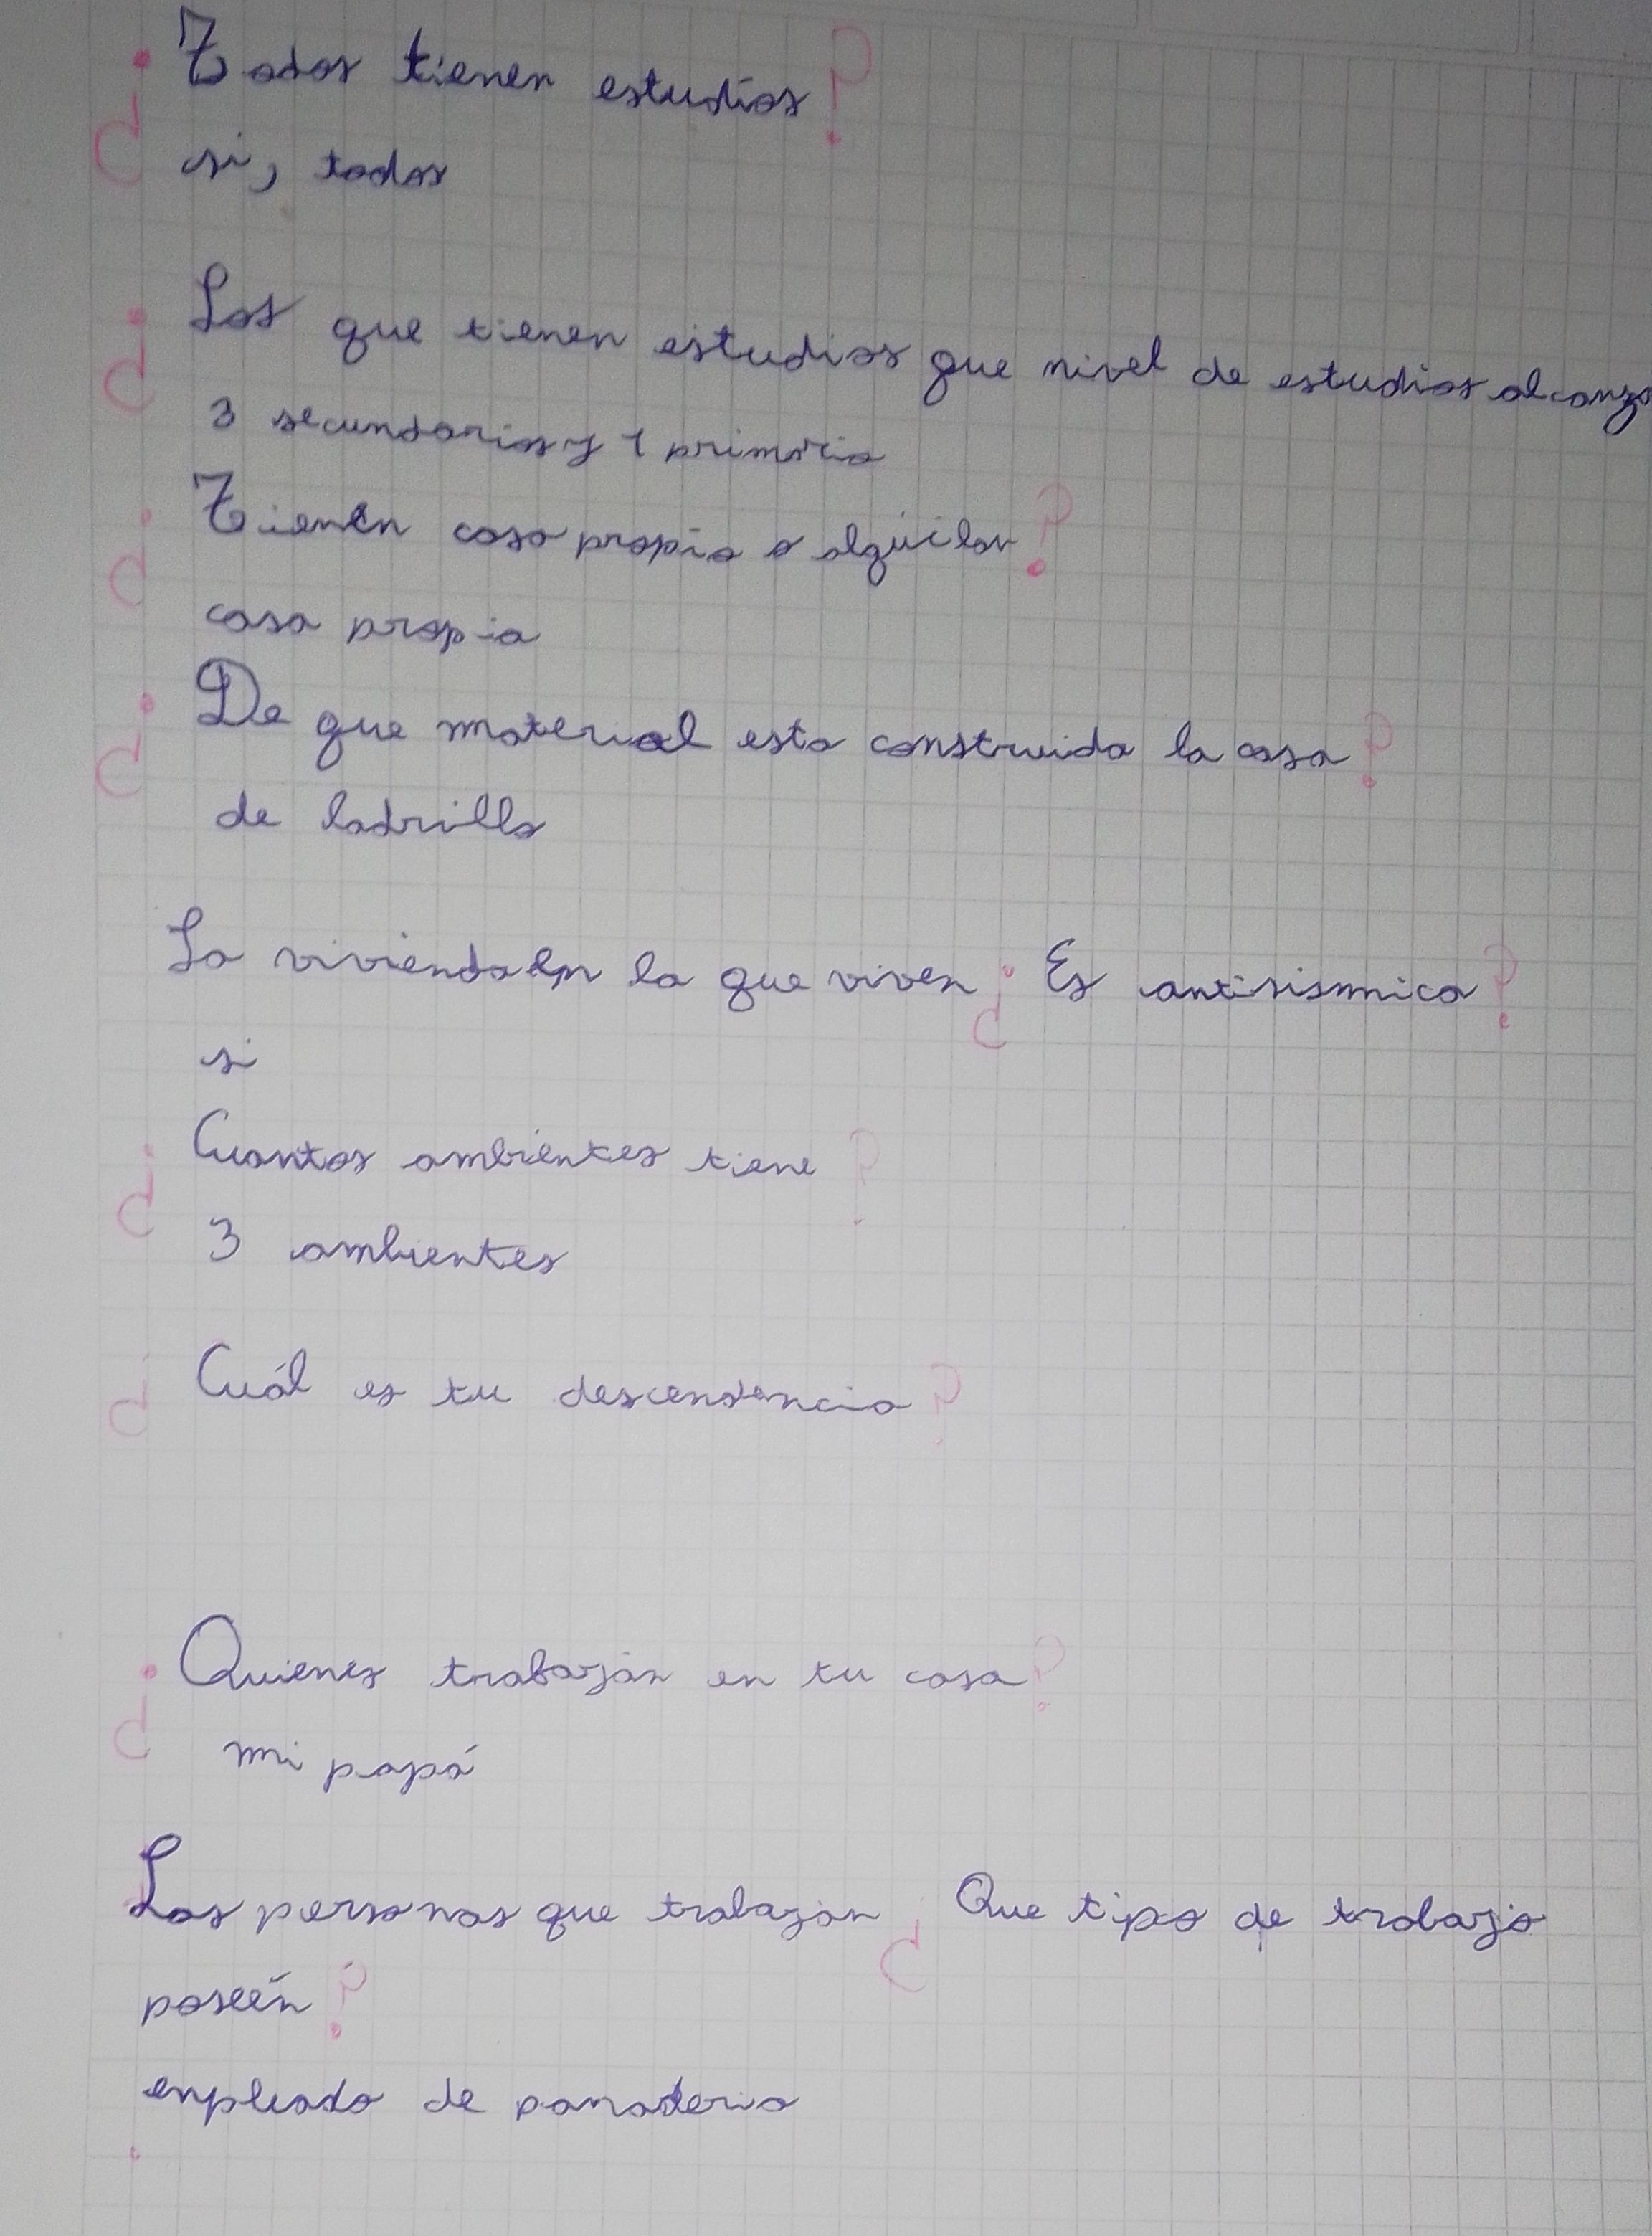 ¿Todos tienen estudios?
si, todos
¿Los que tienen estudios que nivel de estudios alcanzo
3 secundarios y 1 primaria
¿Tienen casa propia o alquilan?
casa propia
¿De que material esta construida la casa?
de ladrillo
La vivienda en la que viven ¿Es antisismica?
si
¿Cuantos ambientes tiene?
3 ambientes
¿Cuál es tu descendencia?
¿Quienes trabajan en tu casa?
mi papá
Las personas que trabajan ¿Que tipo de trabajo
poseén?
enpleado de panaderia